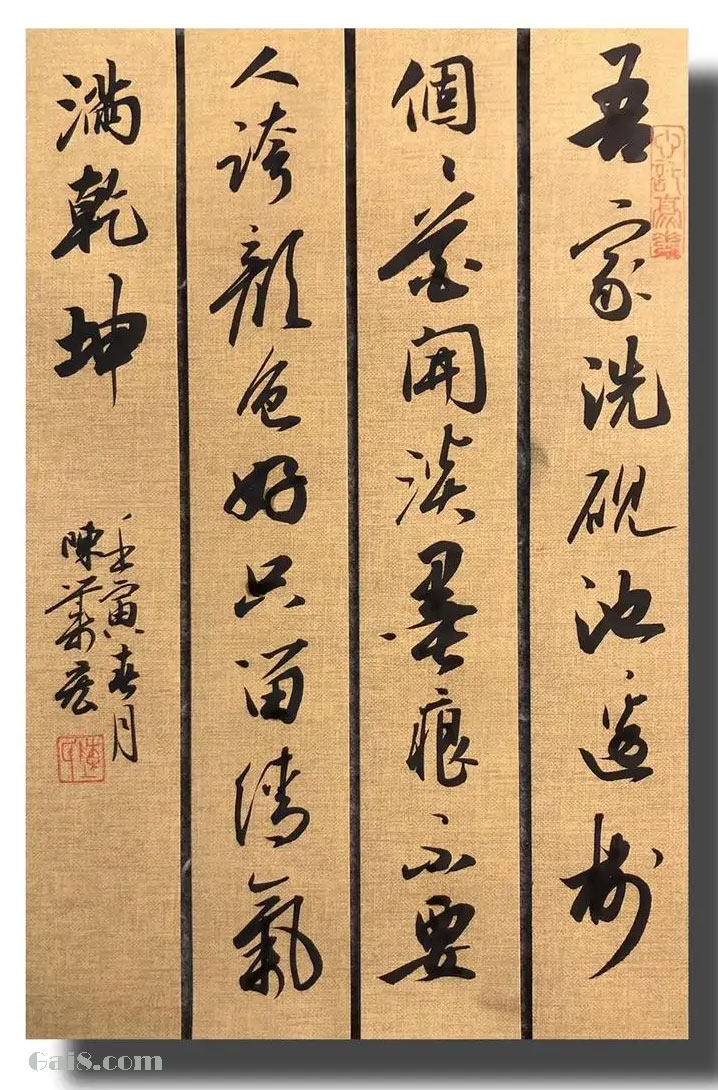 吾家洗硯池邊樹
個〻花開淡墨痕不要
人誇顏色好只留清氣
滿乾坤
壬寅春月
陳
Gai8.com